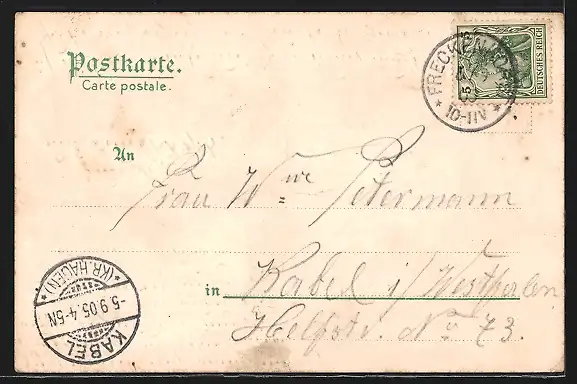 Postkarte.
Carte postale.
DEUTSCHES REICH
5
FRECKEN
10-11V
An
Frau Wwe Petermann
in Kabel i/ Westfalen
Helfstr. No 73.
(KR. HAGEN)
-5.9.05.4-5N
KABEL